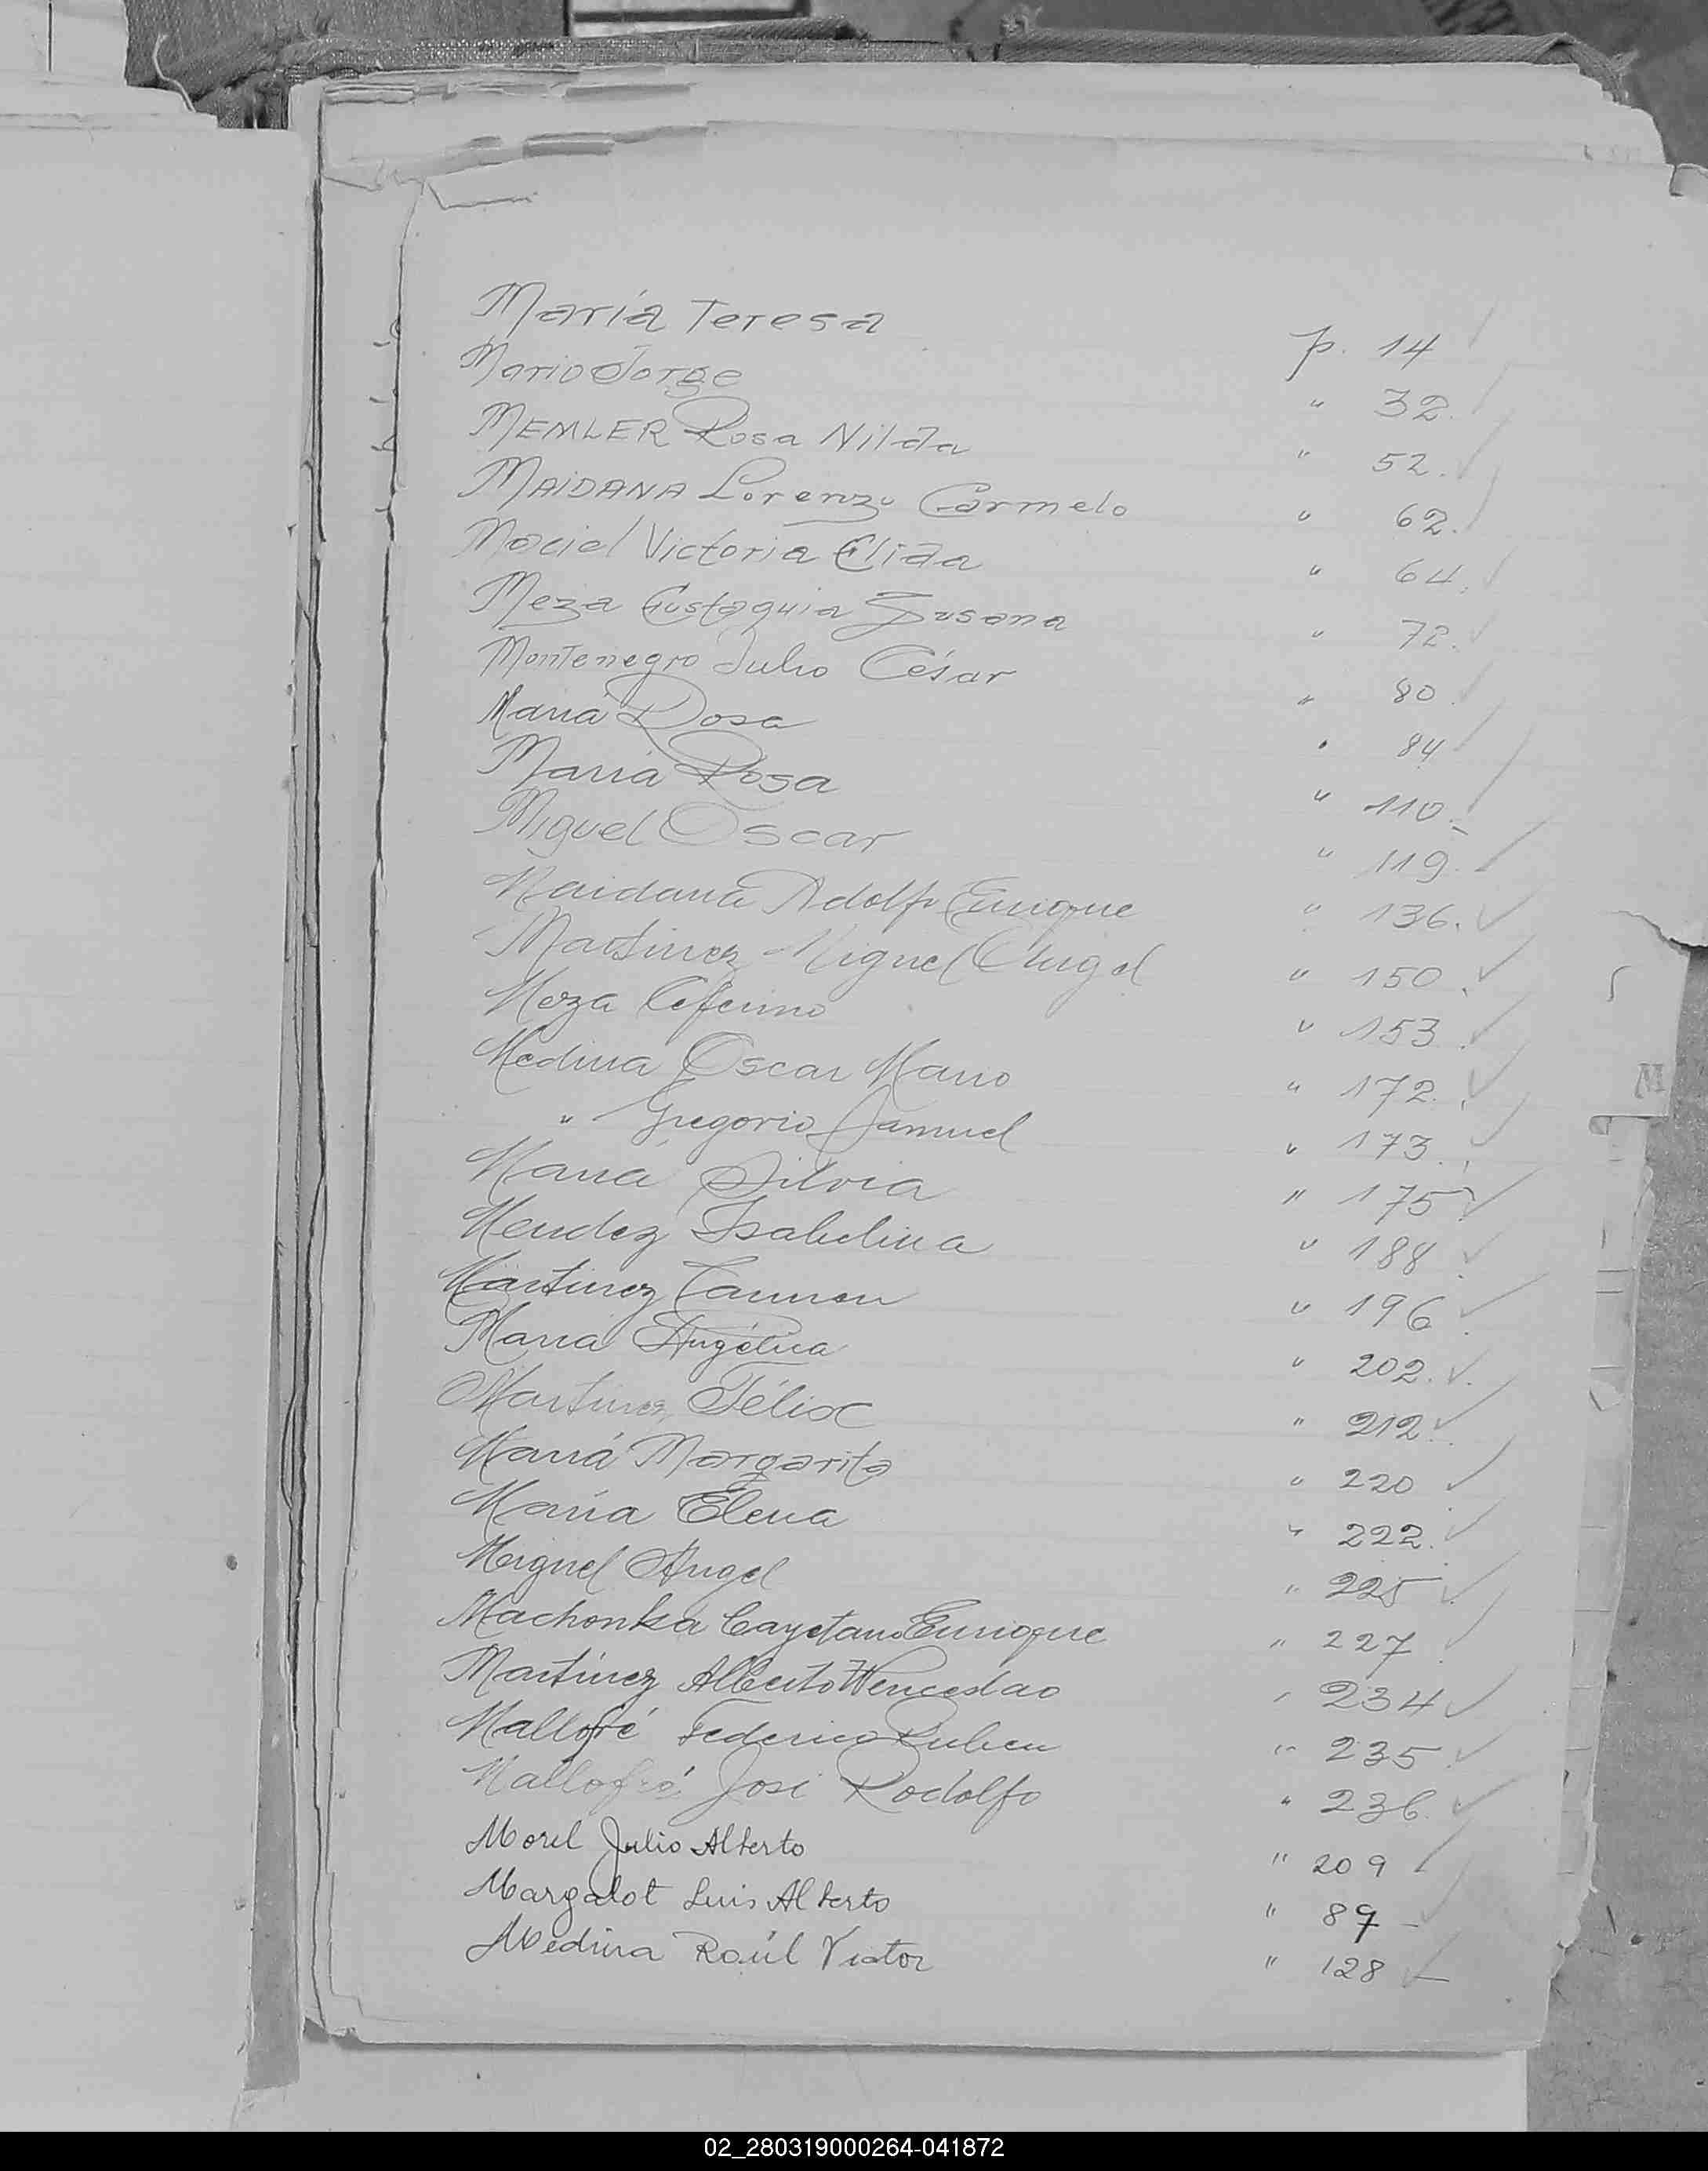 María Teresa p. 14
Mario Jorge " 32.
MEMLER Rosa Nilda " 52.
MAIDANA Lorenzo Carmelo " 62.
Maciel Victoria Elida " 64.
Meza Eustaquia Susana " 72.
Montenegro Julio César " 80.
María Rosa " 84
María Rosa " 110.
Miguel Oscar " 119.
Maidana Adolfo Enrique " 136.
Martinez Miguel Angel " 150.
Meza Ceferino " 153.
Medina Oscar Mario " 172.
" Gregorio Samuel " 173.
María Silvia " 175
Mendez Isabelina " 188.
Martinez Carmen " 196.
María Angélica " 202.
Martinez Félix " 212.
María Margarita " 220
María Elena " 222.
Miguel Angel " 225
Machonka Cayetano Enrique " 227
Martínez Alberto Wenceslao " 234
Mallofré Federico Ruben " 235
Mallofré José Rodolfo " 236.
Morel Julio Alberto " 209
Margalot Luis Alberto " 89 -
Medina Raúl Victor " 128 -
M
02_280319000264-041872